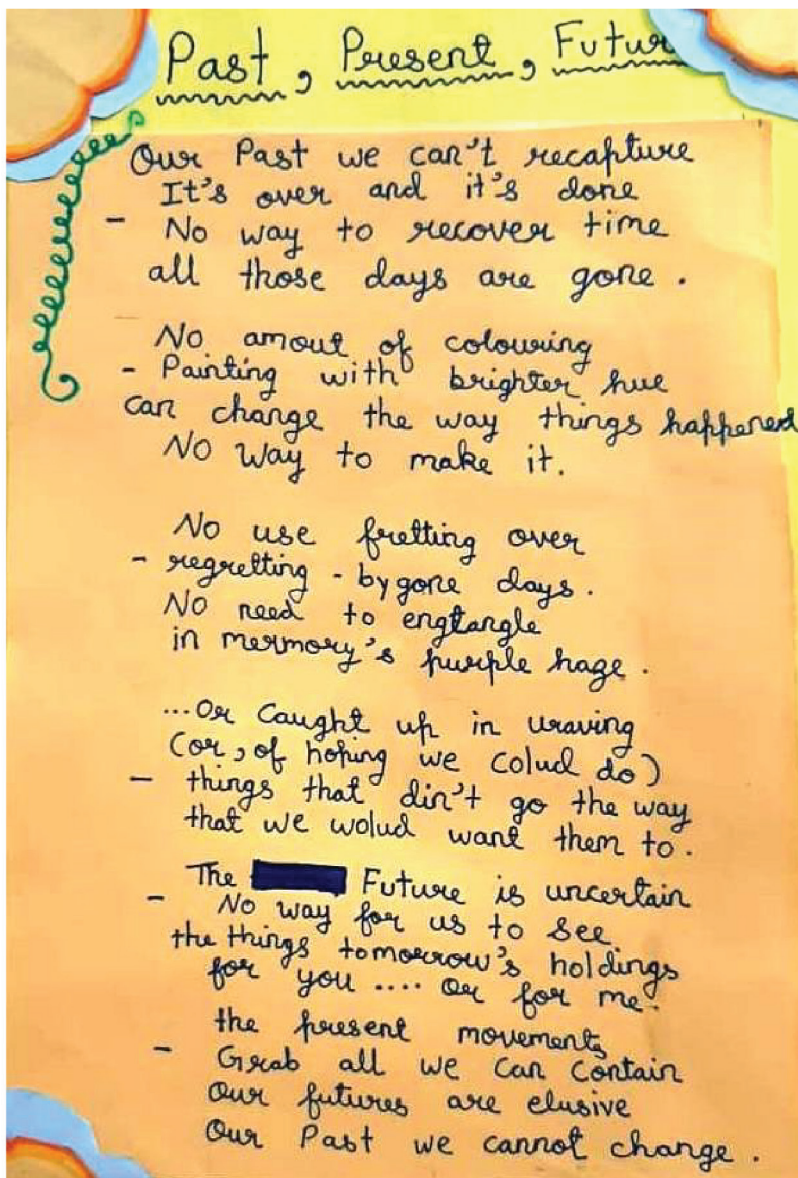 Past, Present, Futur
Our Past we can't recapture
It's over and it's done
- No way to recover time
all those days are gone.
No amout of colouring
- Painting with brighter hue
can change the way things happened
No way to make it.
No use fretting over
- regretting - bygone days.
No need to engtangle
in mermory's purple hage.
...Or Caught up in wraving
(or, of hoping we colud do)
- things that din't go the way
that we wolud want them to.
The Future is uncertain
- No way for us to see
the things tomorrow's holdings
for you .... or for me.
the present movements
- Grab all we can contain
Our futures are elusive
Our Past we cannot change.